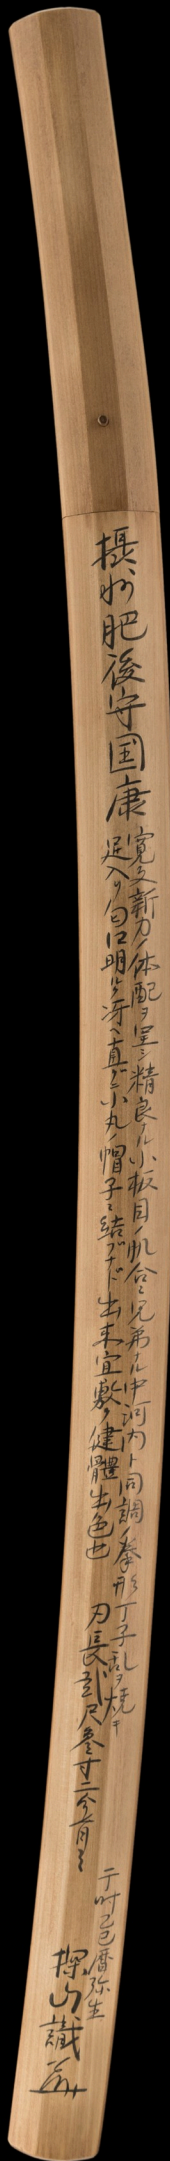 摂州肥後守国康
寛文新刀ノ体配ヲ呈シ精良ナル小板目ノ肌合ニ兄弟ナル中河内ト同調ノ拳形丁子乱ヲ焼キ
足入リ匂口明ルク冴ヘ直グニ小丸ノ帽子ニ結ブナド出来宜敷ク健體ナ出色也
刃長弐尺参寸二分有之
于時己巳暦弥生
探山識